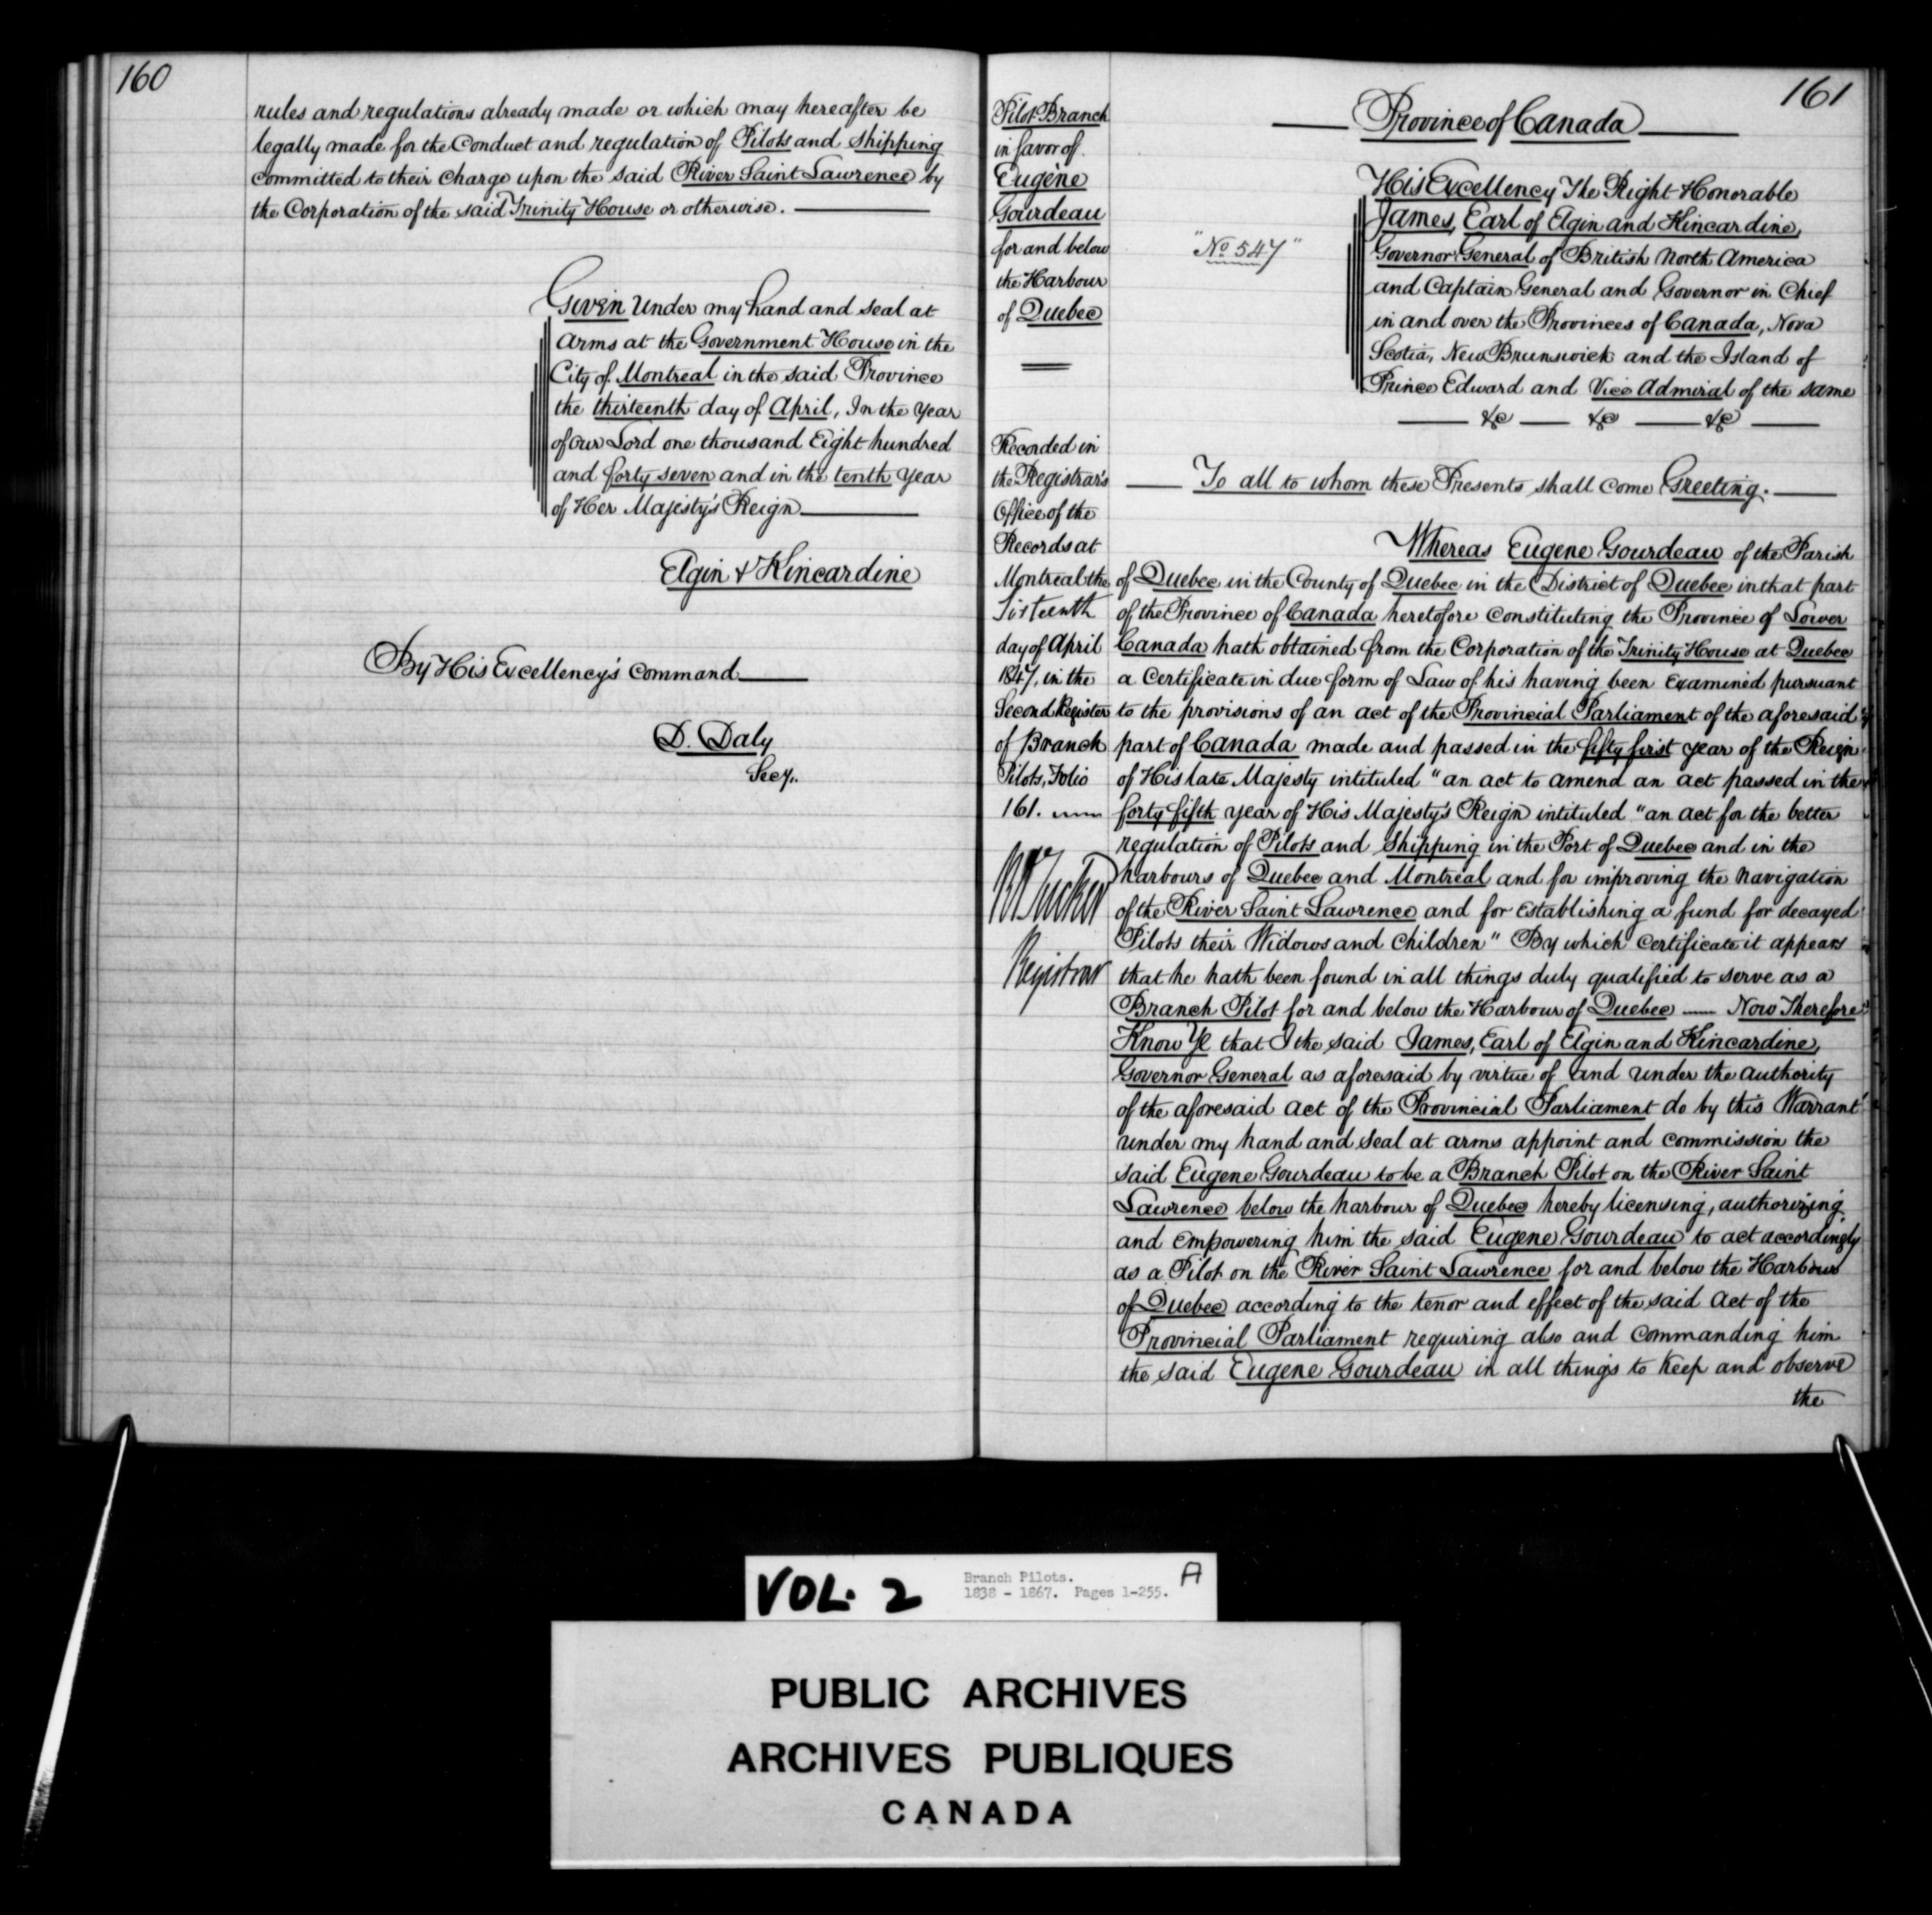 160
rules and regulations already made or which may hereafter be
legally made for the Conduct and regulation of Pilots and Shipping
committed to their Charge upon the said River Saint Lawrence by
the Corporation of the said Trinity House or otherwise.
Given Under my hand and seal at
Arms at the Government House in the
City of Montreal in the said Province
the thirteenth day of April, In the Year
of our Lord one thousand Eight hundred
and forty seven and in the tenth Year
of Her Majesty's Reign
Elgin & Kincardine
By His Excellency's Command
D. Daly
Secy.
161
Pilot Branch
in favor of
Eugène
Gourdeau
for and below
the Harbour
of Quebec
Recorded in
the Registrar's
Office of the
Records at
Montreal the
Sixteenth
day of April
1847, in the
Second Register
of Branch
Pilots, Folio
161.
Registrar
Province of Canada
"No 547"
His Excellency The Right Honorable
James, Earl of Elgin and Kincardine,
Governor General of British North America
and Captain General and Governor in Chief
in and over the Provinces of Canada, Nova
Scotia, New Brunswick and the Island of
Prince Edward and Vice Admiral of the same
&c &c &c
To all to whom these Presents shall come Greeting.
Whereas Eugene Gourdeau of the Parish
of Quebec in the County of Quebec in the District of Quebec in that part
of the Province of Canada heretofore constituting the Province of Lower
Canada hath obtained from the Corporation of the Trinity House at Quebec
a Certificate in due form of Law of his having been Examined pursuant
to the provisions of an act of the Provincial Parliament of the aforesaid
part of Canada made and passed in the fifty first year of the Reign
of His late Majesty intituled "an act to amend an act passed in the
forty fifth year of His Majesty's Reign intituled "an act for the better
regulation of Pilots and Shipping in the Port of Quebec and in the
harbours of Quebec and Montreal and for improving the navigation
of the River Saint Lawrence and for Establishing a fund for decayed
Pilots their Widows and Children" By which Certificate it appears
that he hath been found in all things duly qualified to serve as a
Branch Pilot for and below the Harbour of Quebec Now Therefore
Know Ye that I the said James, Earl of Elgin and Kincardine,
Governor General as aforesaid by virtue of and under the authority
of the aforesaid act of the Provincial Parliament do by this Warrant
under my hand and seal at arms appoint and commission the
said Eugene Gourdeau to be a Branch Pilot on the River Saint
Lawrence below the harbour of Quebec hereby licensing, authorizing
and empowering him the said Eugene Gourdeau to act accordingly
as a Pilot on the River Saint Lawrence for and below the Harbour
of Quebec according to the tenor and effect of the said Act of the
Provincial Parliament requiring also and commanding him
the said Eugene Gourdeau in all things to Keep and observe
the
VOL. 2
Branch Pilots.
1838 - 1867. Pages 1-255.
A
PUBLIC ARCHIVES
ARCHIVES PUBLIQUES
CANADA